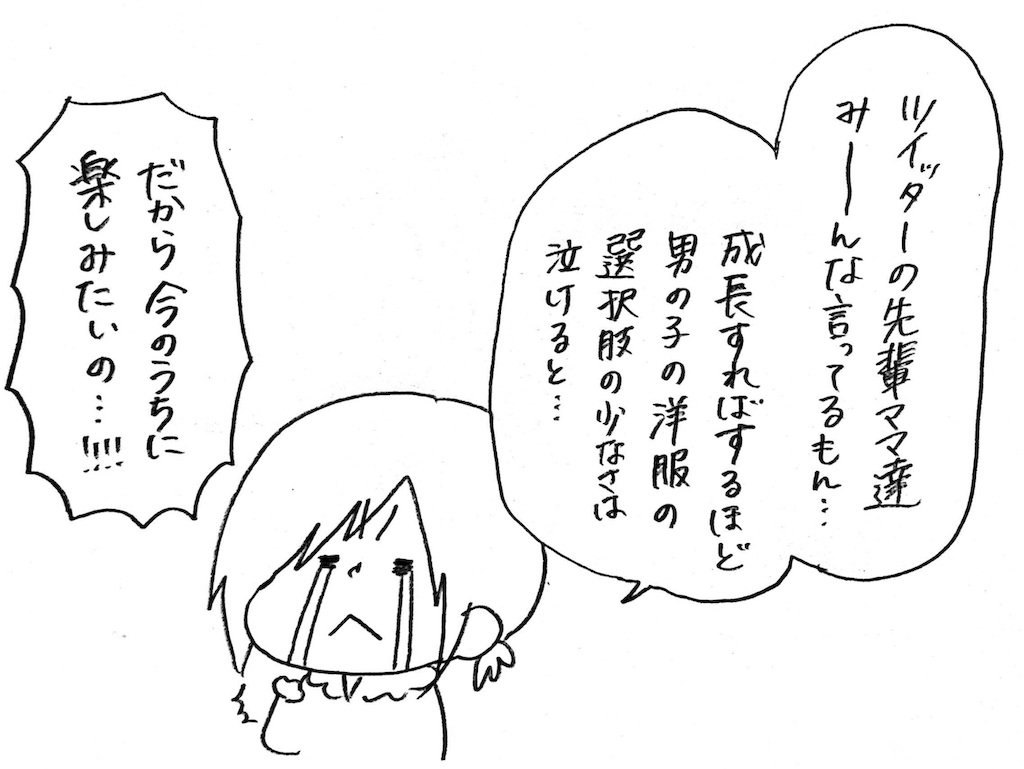 ツイッターの先輩ママ達
みーーんな言ってるもん…
成長すればするほど
男の子の洋服の
選択肢の少なさは
泣けると…
だから今のうちに
楽しみたいの…!!!!